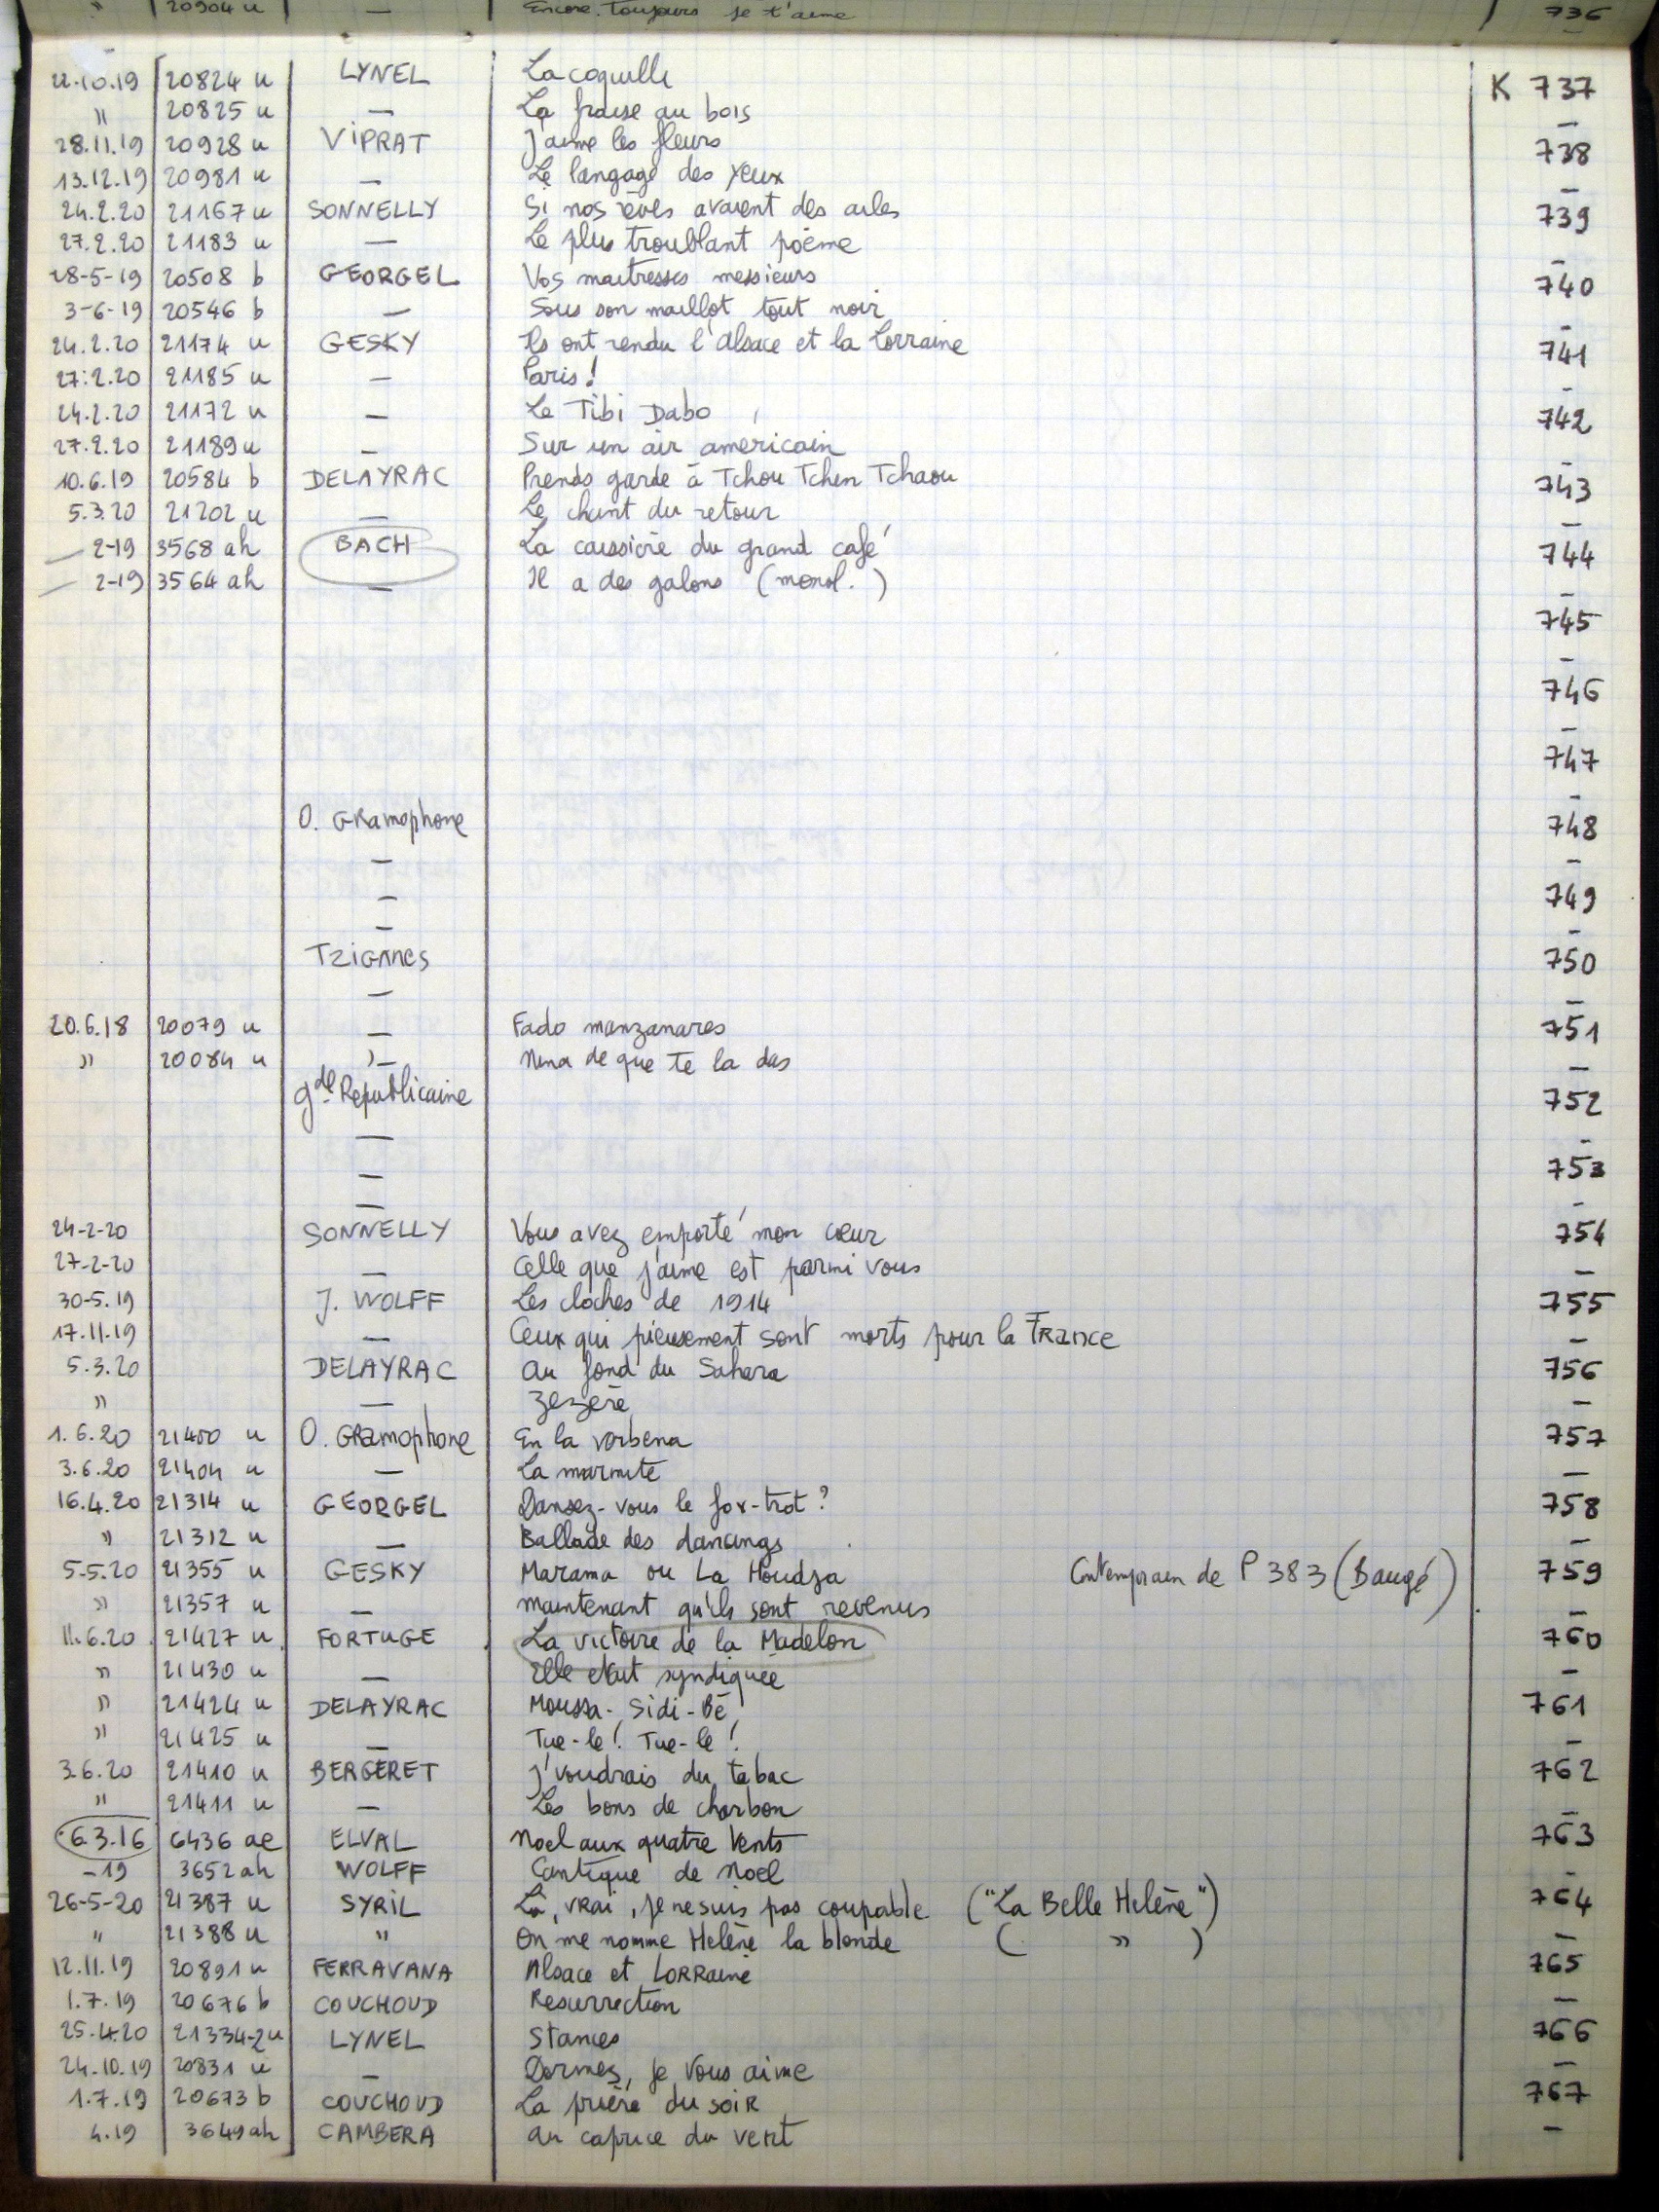 " 20904 u — Encore. Toujours je t'aime 736
22.10.19 20824 u LYNEL La coquille K 737
" 20825 u — La fraise au bois —
28.11.19 20928 u VIPRAT J'aime les fleurs 738
13.12.19 20981 u — Le langage des yeux —
24.2.20 21167 u SONNELLY Si nos rêves avaient des ailes 739
27.2.20 21183 u — Le plus troublant poème —
28-5-19 20508 b GEORGEL Vos maitresses messieurs 740
3-6-19 20546 b — Sous son maillot tout noir —
24.2.20 21174 u GESKY Ils ont rendu l'Alsace et la Lorraine 741
27.2.20 21185 u — Paris ! —
24.2.20 21172 u — Le Tibi Dabo 742
27.2.20 21189 u — Sur un air americain —
10.6.19 20584 b DELAYRAC Prends garde à Tchou Tchin Tchaou 743
5.3.20 21202 u — Le chant du retour —
2-19 3568 ah BACH La caissière du grand café 744
2-19 3564 ah — Il a des galons (monol.) —
745
—
746
—
747
—
O. Gramophone 748
— —
— 749
— —
Tziganes 750
— —
20.6.18 20079 u — Fado manzanares 751
" 20084 u — Nina de que te la das —
gde Republicaine 752
— —
— 753
— —
24-2-20 SONNELLY Vous avez emporté mon cœur 754
27-2-20 — Celle que j'aime est parmi vous —
30-5.19 J. WOLFF Les cloches de 1914 755
17.11.19 — Ceux qui pieusement sont morts pour la France —
5.3.20 DELAYRAC Au fond du Sahara 756
" — Zézère —
1.6.20 21400 u O. Gramophone En la verbena 757
3.6.20 21404 u — La marmite —
16.4.20 21314 u GEORGEL Dansez-vous le fox-trot ? 758
" 21312 u — Ballade des dancings —
5-5.20 21355 u GESKY Marama ou La Houdja Contemporain de P 383 (Baugé) 759
" 21357 u — maintenant qu'ils sont revenus —
11.6.20 21427 u FORTUGE La victoire de la Madelon 760
" 21430 u — Elle etait syndiquée —
" 21424 u DELAYRAC Moussa-Sidi-Bé 761
" 21425 u — Tue-le ! Tue-le ! —
3.6.20 21410 u BERGERET J'voudrais du tabac 762
" 21411 u — Les bons de charbon —
6.3.16 6436 ae ELVAL Noel aux quatre vents 763
-19 3652 ah WOLFF Cantique de Noel —
26-5-20 21387 u SYRIL Là, vrai, je ne suis pas coupable ("La Belle Helène") 764
" 21388 u " On me nomme Helène la blonde ( " ) —
12.11.19 20891 u FERRAVANA Alsace et Lorraine 765
1.7.19 20676 b COUCHOUD Resurrection —
25.4.20 21334-2u LYNEL Stances 766
24.10.19 20831 u — Dormez, je vous aime —
1.7.19 20673 b COUCHOUD La prière du soir 767
4.19 3649 ah CAMBERA Au caprice du vent —